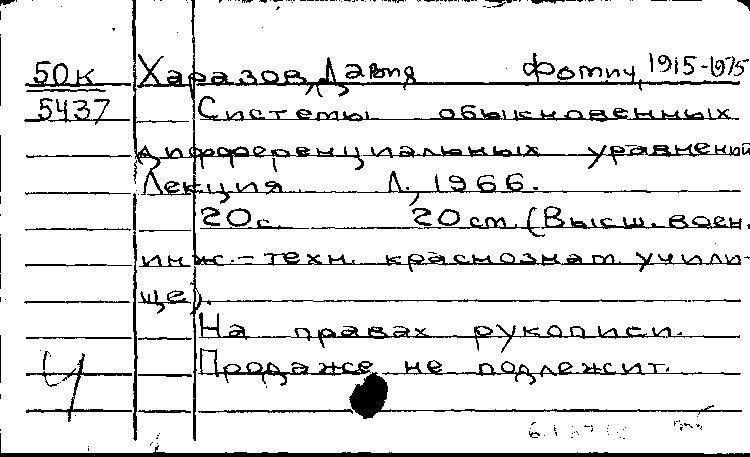 50к Харазов, Давид Фомич, 1915-1975
5437 Системы обыкновенных
дифференциальных уравнений
Лекция Л., 1966.
20с. 20 см. (Высш. воен.
инж.-техн. краснознам. учили-
ще).
На правах рукописи.
Продаже не подлежит.
Ч